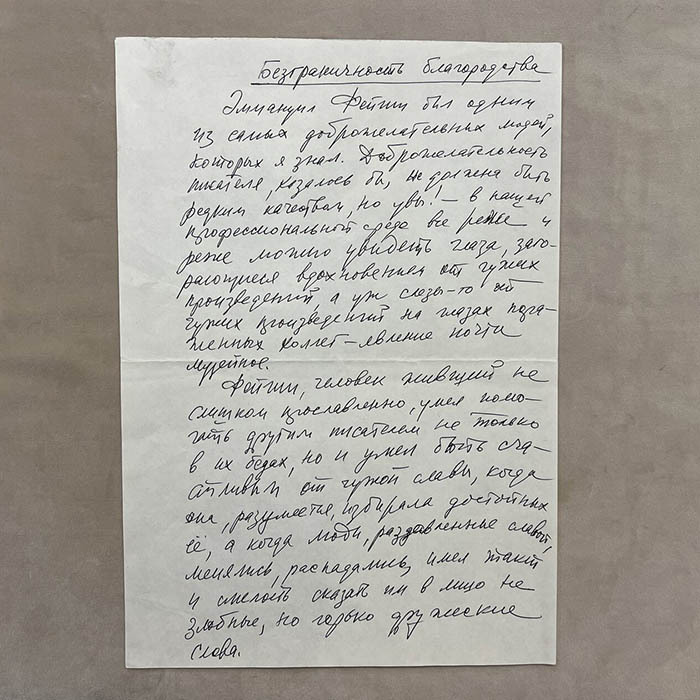 Безграничность благородства
Эммануил Фейгин был одним
из самых доброжелательных людей,
которых я знал. Доброжелательность
писателя, казалось бы, не должна быть
редким качеством, но увы! – в нашей
профессиональной среде все реже и
реже можно увидеть глаза, заго-
рающиеся вдохновением от чужих
произведений, а уж слезы-то от
чужих произведений на глазах
коллег – явление почти
музейное.
Фейгин, человек живший не
слишком прославленно, умел помо-
гать другим писателям не только
в их бедах, но и умел быть сча-
стливым от чужой славы, когда
она, разумеется, избирала достойных
её, а когда люди, раздавленные славой,
менялись, распадались, имел такт
и смелость сказать им в лицо не
злобные, но горько дружеские
слова.